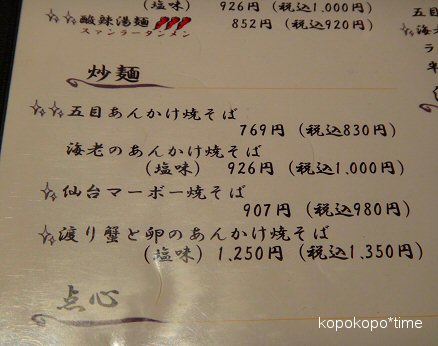 (塩味) 926円 (税込1,000円)
酸辣湯麺 852円 (税込920円)
スァンラータンメン
炒麺
五目あんかけ焼そば
769円 (税込830円)
海老のあんかけ焼そば
(塩味) 926円 (税込1,000円)
仙台マーボー焼そば
907円 (税込980円)
渡り蟹と卵のあんかけ焼そば
(塩味) 1,250円 (税込1,350円)
点心
五目
海老
ラ
kopokopo*time